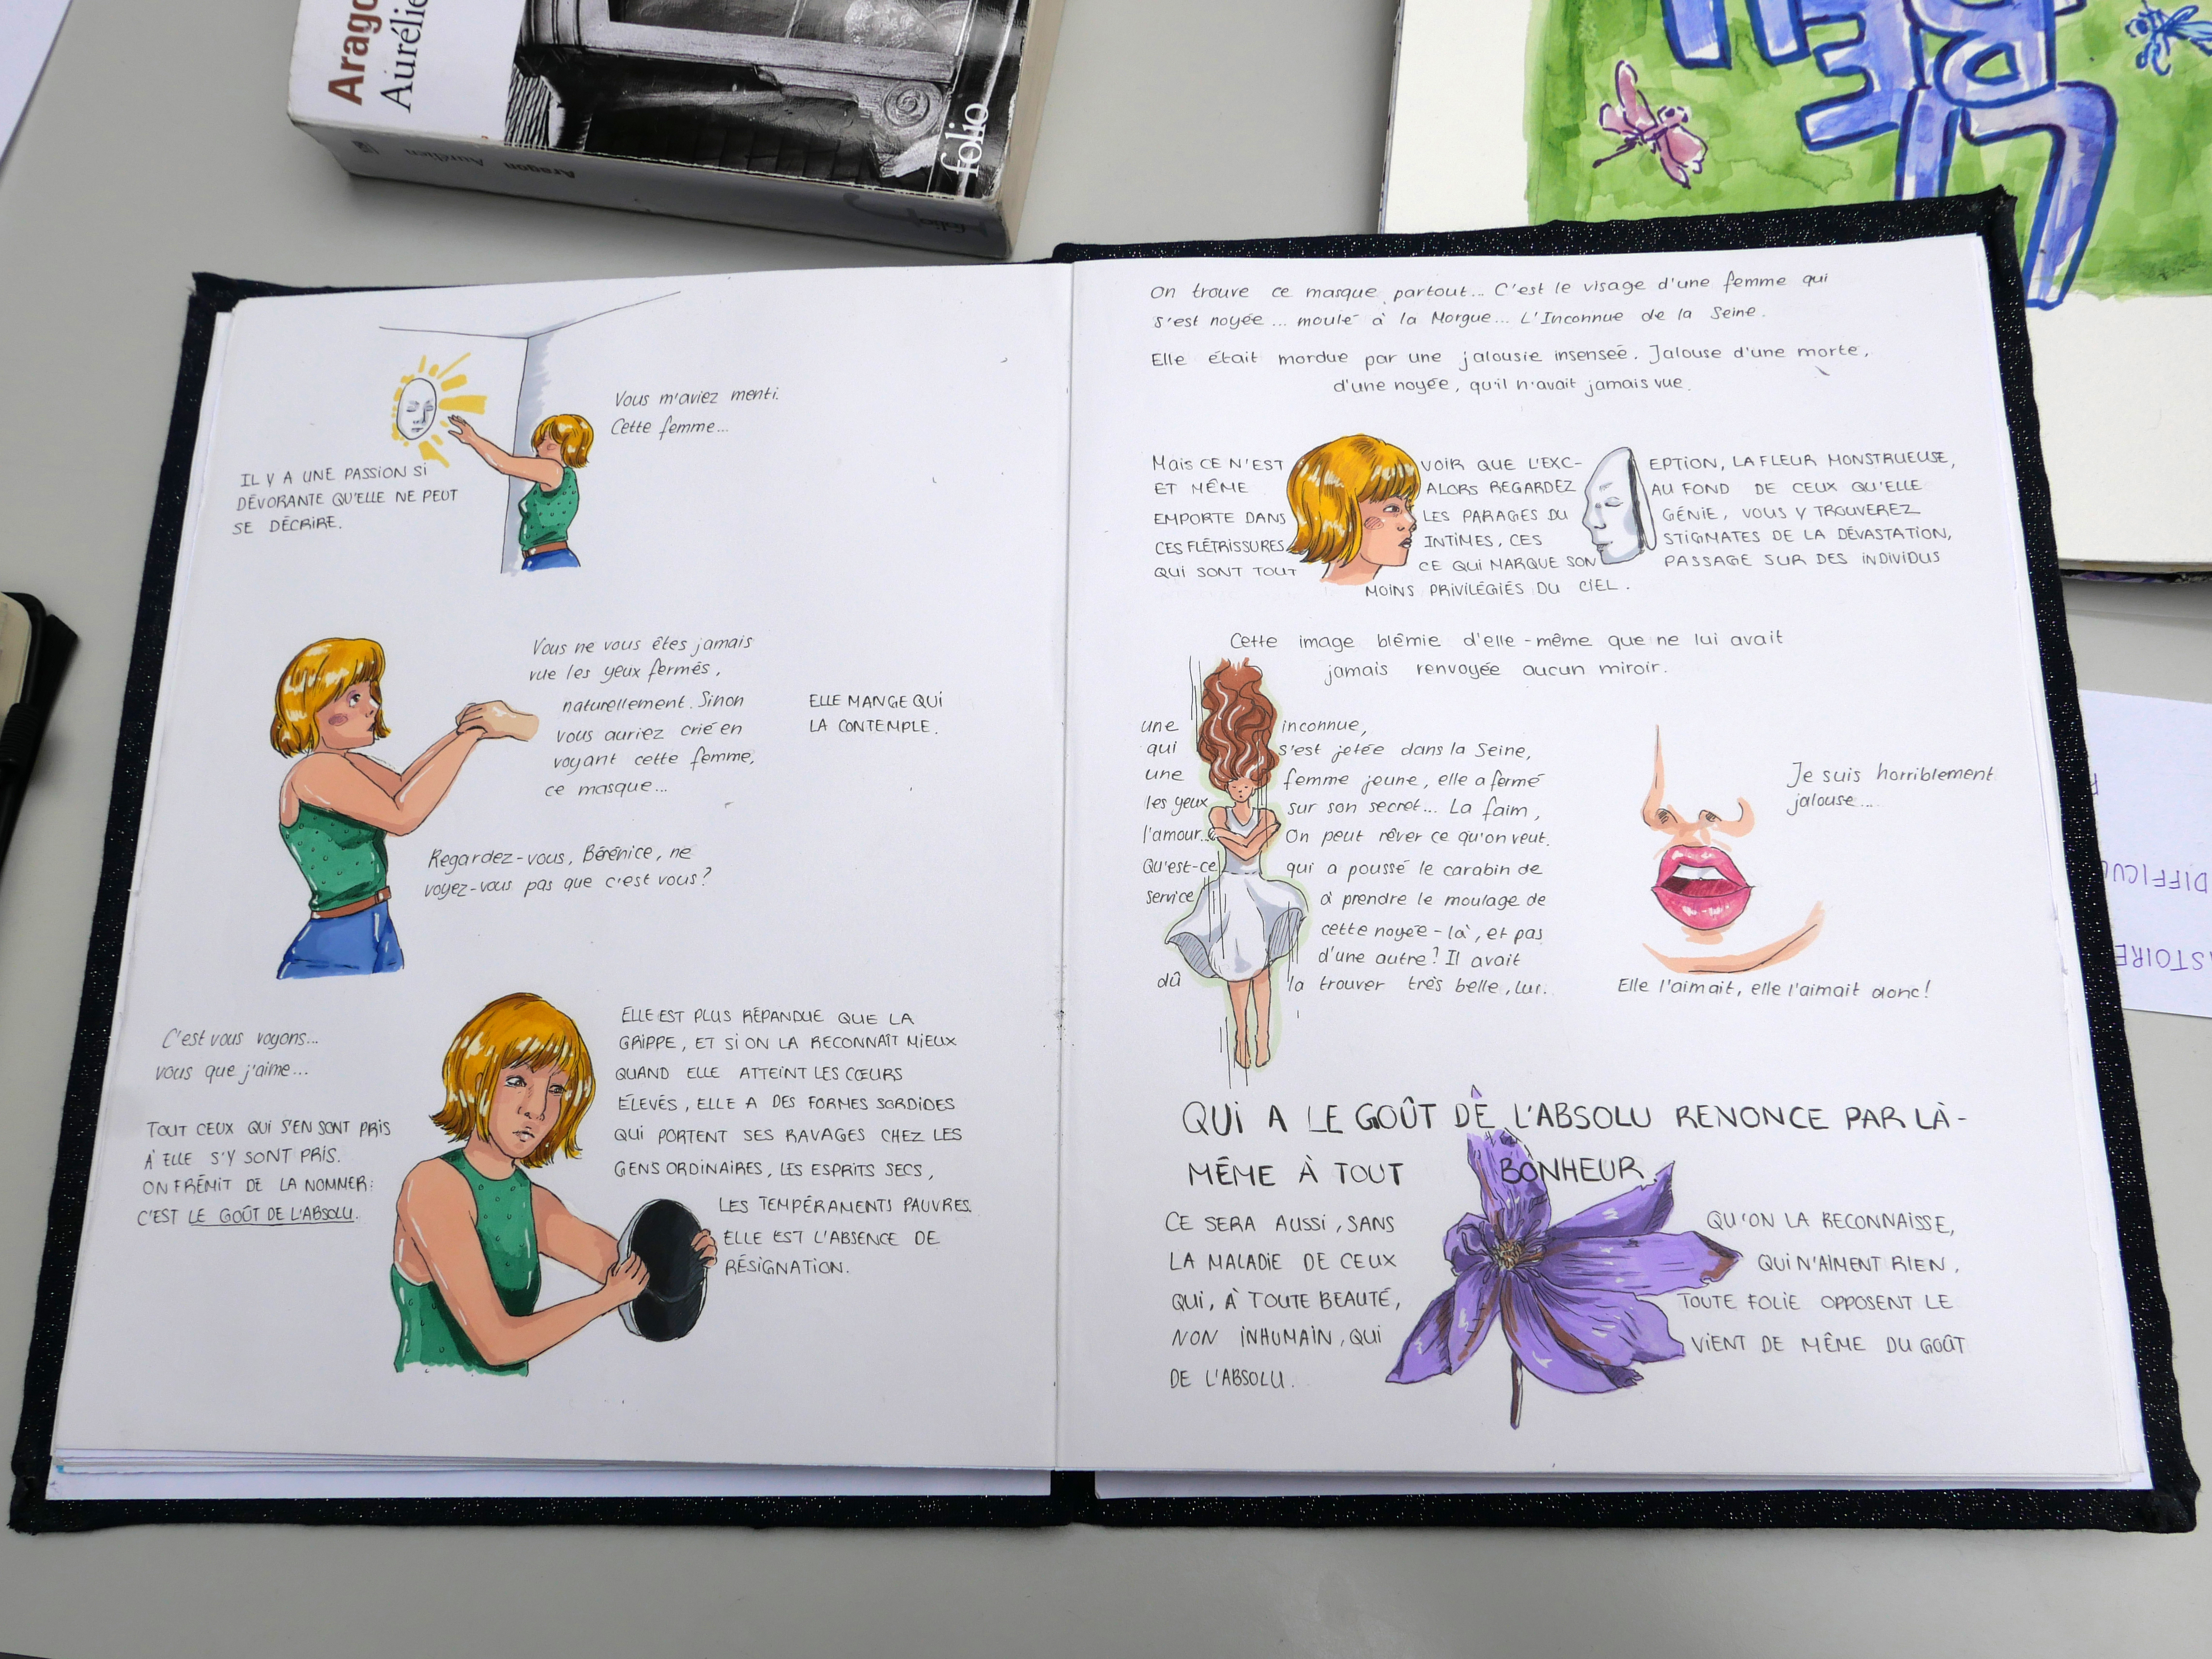 Aragon
Aurélien
folio
Aragon Aurélien
Vous m'aviez menti.
Cette femme...
IL Y A UNE PASSION SI
DÉVORANTE QU'ELLE NE PEUT
SE DÉCRIRE.
Vous ne vous êtes jamais
vue les yeux fermés,
naturellement. Sinon
vous auriez crié en
voyant cette femme,
ce masque...
ELLE MANGE QUI
LA CONTEMPLE.
Regardez-vous, Bérénice, ne
voyez-vous pas que c'est vous?
C'est vous voyons...
vous que j'aime...
TOUT CEUX QUI S'EN SONT PRIS
À ELLE S'Y SONT PRIS.
ON FRÉMIT DE LA NOMMER:
C'EST LE GOÛT DE L'ABSOLU.
ELLE EST PLUS RÉPANDUE QUE LA
GRIPPE, ET SI ON LA RECONNAÎT MIEUX
QUAND ELLE ATTEINT LES CŒURS
ÉLEVÉS, ELLE A DES FORMES SORDIDES
QUI PORTENT SES RAVAGES CHEZ LES
GENS ORDINAIRES, LES ESPRITS SECS,
LES TEMPÉRAMENTS PAUVRES.
ELLE EST L'ABSENCE DE
RÉSIGNATION.
On trouve ce masque partout... C'est le visage d'une femme qui
s'est noyée... moulé à la Morgue... L'Inconnue de la Seine.
Elle était mordue par une jalousie insensée. Jalouse d'une morte,
d'une noyée, qu'il n'avait jamais vue.
Mais CE N'EST VOIR QUE L'EXC-EPTION, LA FLEUR MONSTRUEUSE,
ET MÊME ALORS REGARDEZ AU FOND DE CEUX QU'ELLE
EMPORTE DANS LES PARAGES DU GÉNIE, VOUS Y TROUVEREZ
CES FLÉTRISSURES INTIMES, CES STIGMATES DE LA DÉVASTATION,
QUI SONT TOUT CE QUI MARQUE SON PASSAGE SUR DES INDIVIDUS
MOINS PRIVILÉGIÉS DU CIEL.
Cette image blêmie d'elle-même que ne lui avait
jamais renvoyée aucun miroir.
une inconnue,
qui s'est jetée dans la Seine,
une femme jeune, elle a fermé
les yeux sur son secret... La faim,
l'amour... On peut rêver ce qu'on veut.
Qu'est-ce qui a poussé le carabin de
service à prendre le moulage de
cette noyée-là, et pas
d'une autre? Il avait
dû la trouver très belle, lui.
Je suis horriblement
jalouse...
Elle l'aimait, elle l'aimait donc!
QUI A LE GOÛT DE L'ABSOLU RENONCE PAR LÀ-
MÊME À TOUT BONHEUR.
CE SERA AUSSI, SANS QU'ON LA RECONNAISSE,
LA MALADIE DE CEUX QUI N'AIMENT RIEN,
QUI, À TOUTE BEAUTÉ, TOUTE FOLIE OPPOSENT LE
NON INHUMAIN, QUI VIENT DE MÊME DU GOÛT
DE L'ABSOLU.